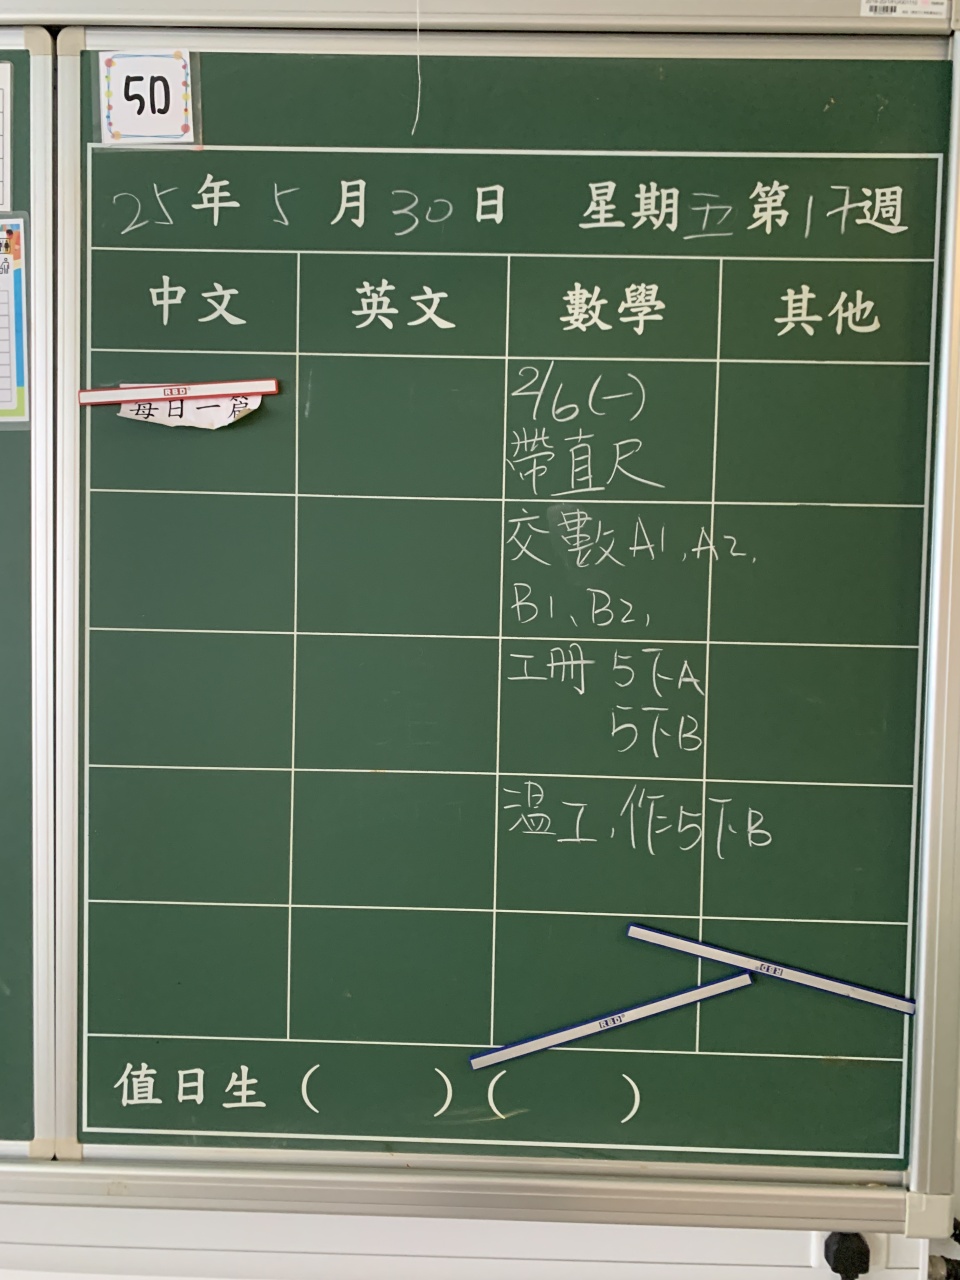 5D
25年 5月30日 星期五第17週
中文 英文 數學 其他
RBD
每日一篇
2/6(一)
帶直尺
交數A1、A2、
B1、B2、
工冊 5下A
5下B
溫工、作5下B
RBD
RBD
值日生 ( ) ( )